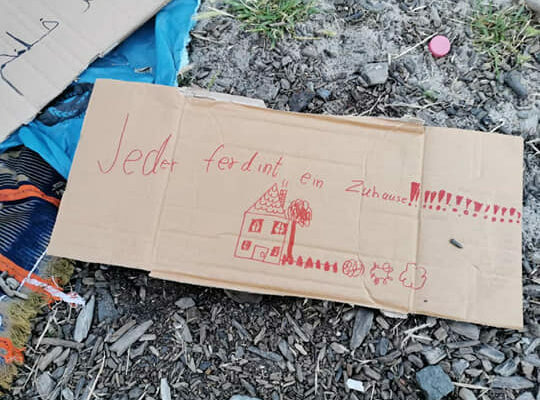 Jeder ferdint ein Zuhause!!!!!!!!!!!!!!